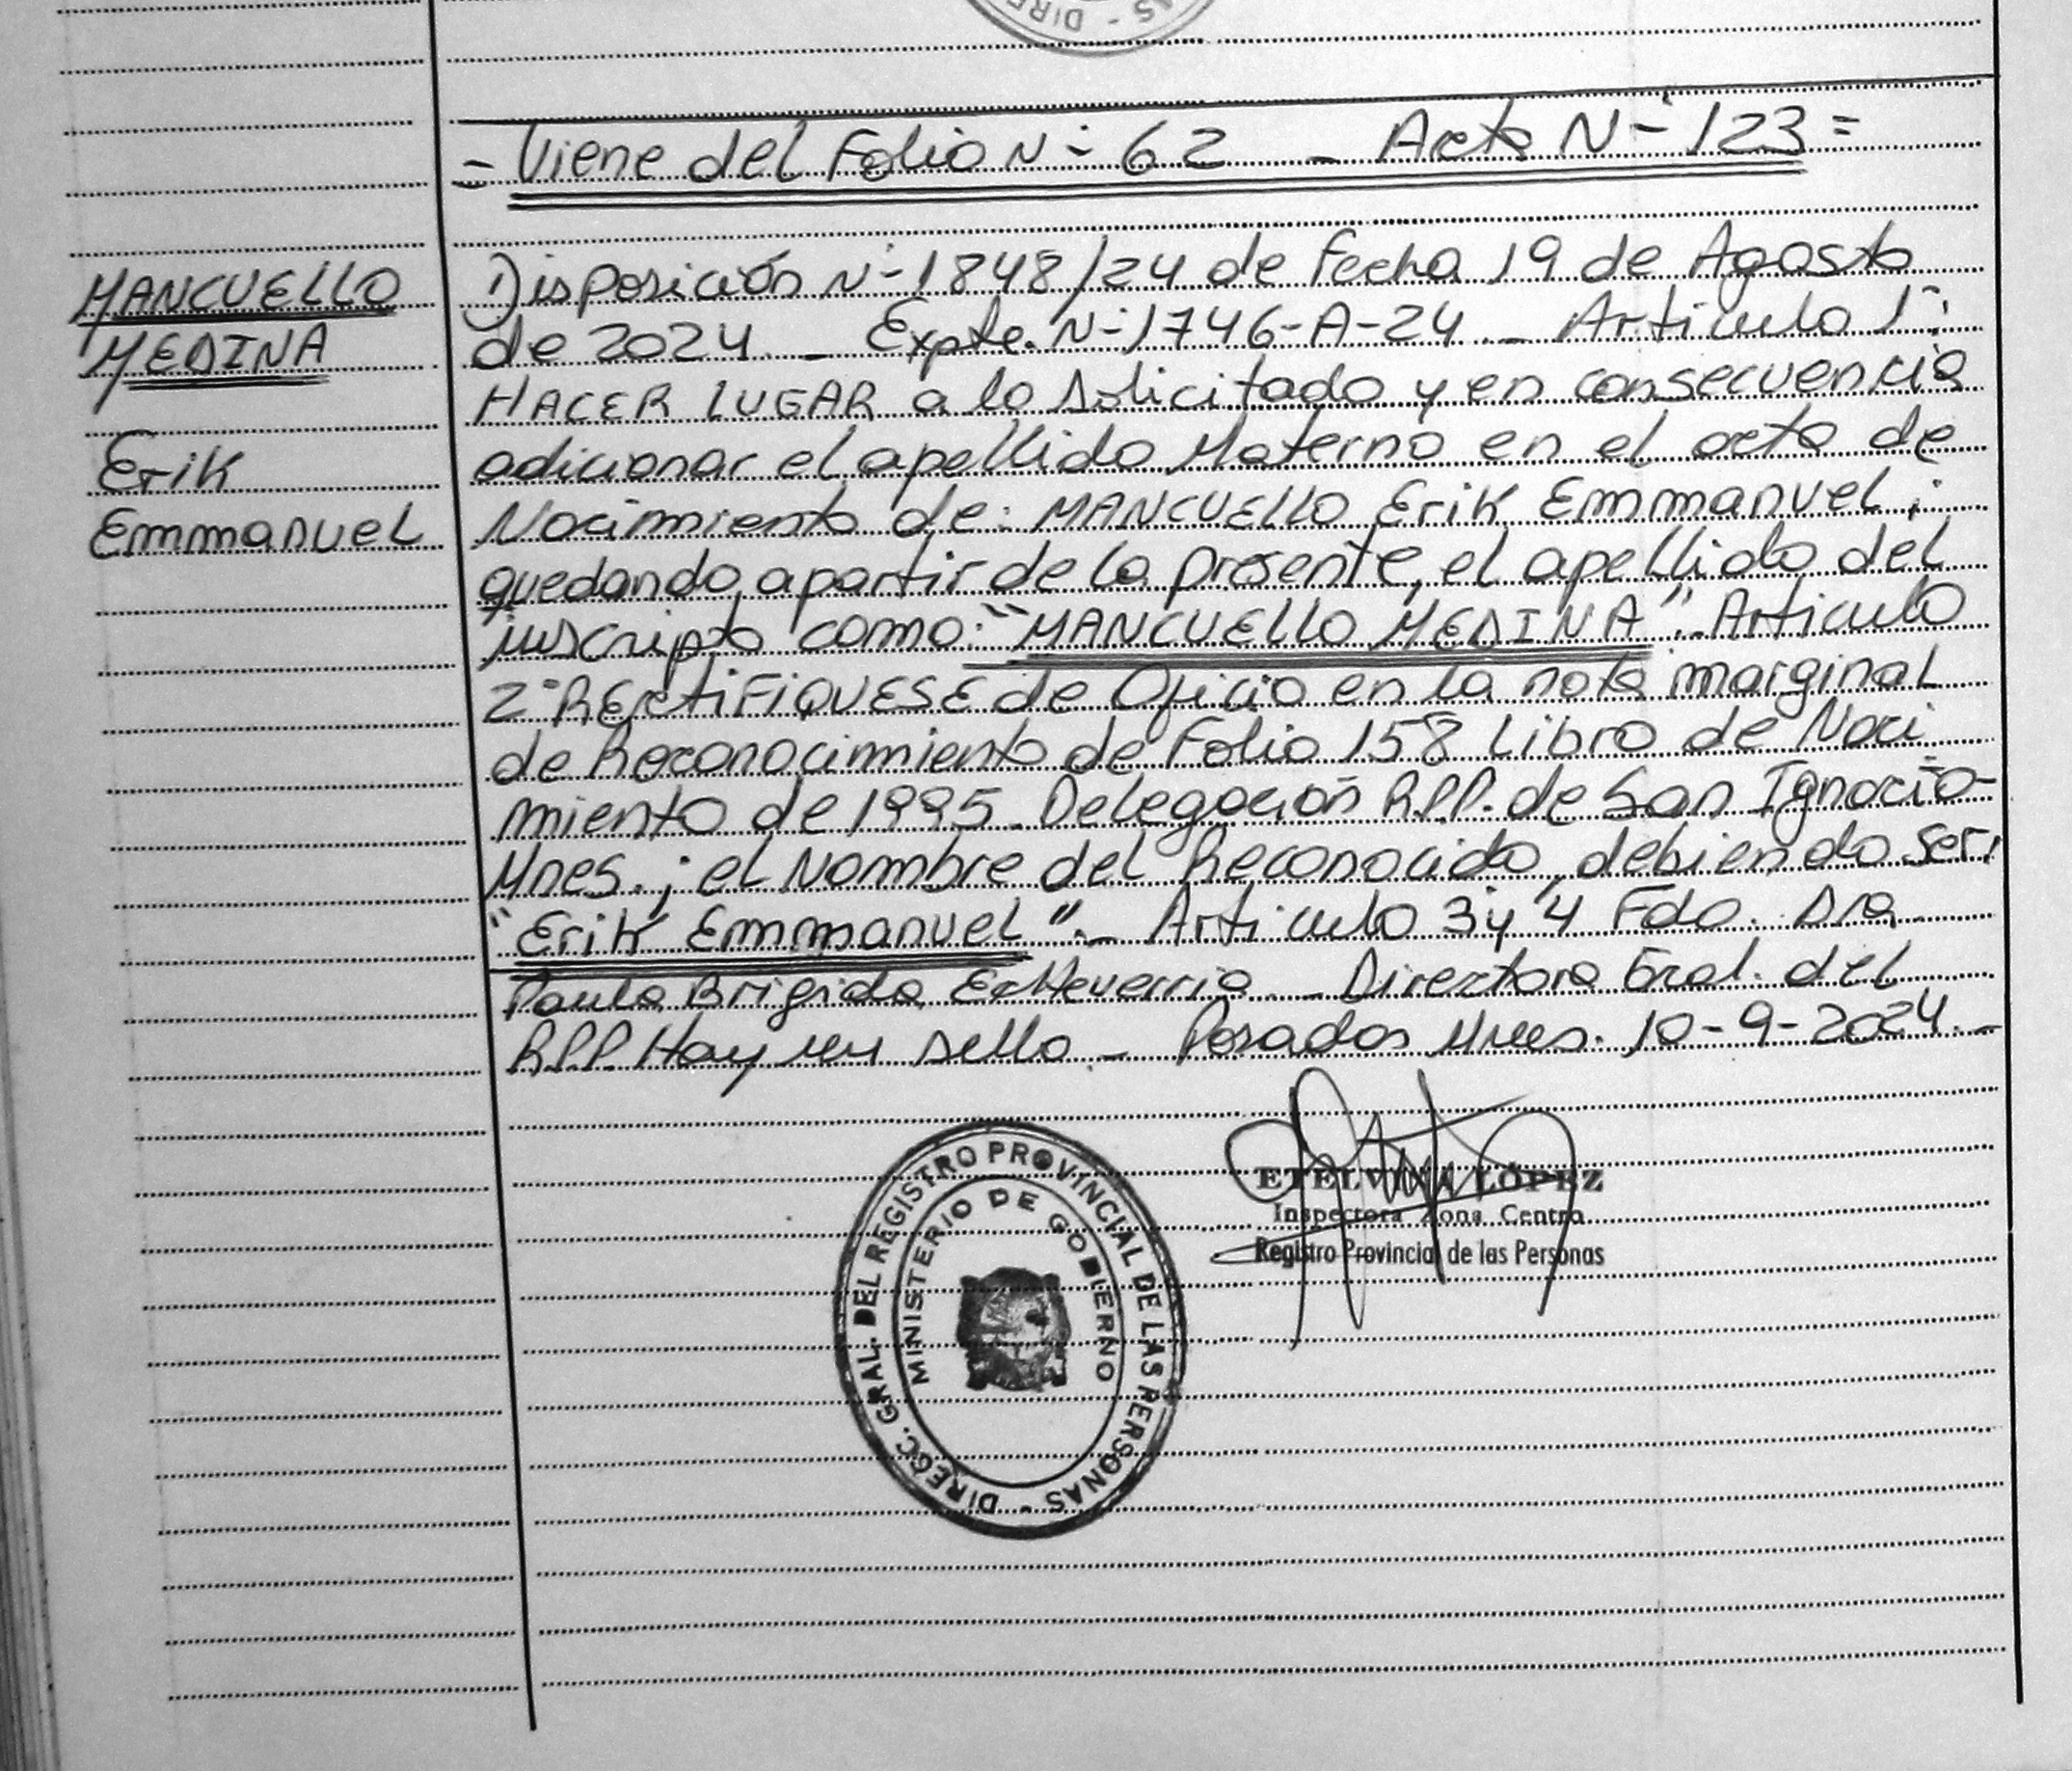 = Viene del Folio N- 62 _ Acta N- 123 =
MANCUELLO
MEDINA
Erik
Emmanuel
Disposición N-1848/24 de Fecha 19 de Agosto
de 2024 _ Expte. N-1746-A-24 _ Articulo 1°:
HACER LUGAR a lo solicitado y en consecuencia
adicionar el apellido Materno en el acta de
Nacimiento de: MANCUELLO Erik Emmanuel;
quedando, a partir de la presente, el apellido del
inscripto como: "MANCUELLO MEDINA". Articulo
2° RECtiFIQUESE de Oficio en la nota marginal
de Reconocimiento de Folio 158 Libro de Naci
miento de 1995. Delegación R.P.P. de San Ignacio-
Mnes.; el Nombre del Reconocido, debiendo ser,
"Erik Emmanuel"._ Articulo 3 y 4 Fdo. Dra
Paula Brigida Echeverria _ Directora Gral. del
R.P.P. Hay un sello _ Posadas Mnes. 10-9-2024._
ETELVINA LÓPEZ
Inspectora Zona Centro
Registro Provincial de las Personas
DIREC. GRAL. DEL REGISTRO PROVINCIAL DE LAS PERSONAS -
MINISTERIO DE GOBIERNO